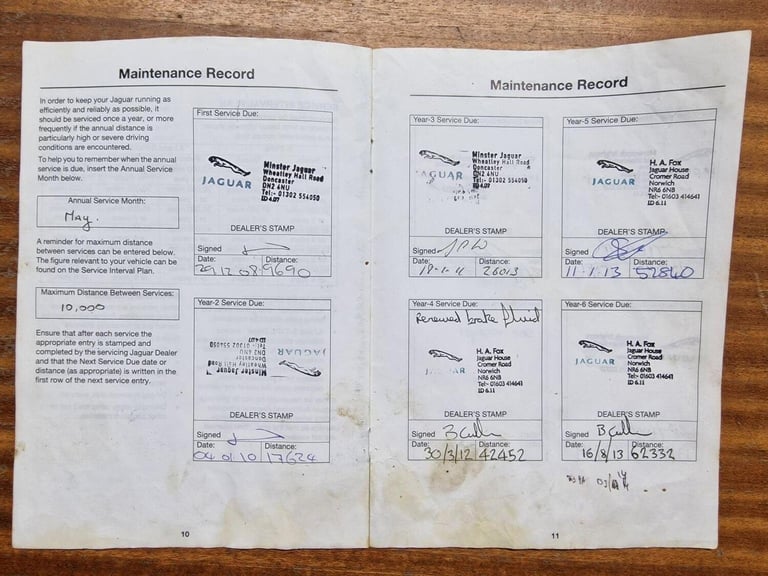 Maintenance Record
In order to keep your Jaguar running as
efficiently and reliably as possible, it
should be serviced once a year, or more
frequently if the annual distance is
particularly high or severe driving
conditions are encountered.
To help you to remember when the annual
service is due, insert the Annual Service
Month below.
Annual Service Month:
May.
A reminder for maximum distance
between services can be entered below.
The figure relevant to your vehicle can be
found on the Service Interval Plan.
Maximum Distance Between Services:
10,000
Ensure that after each service the
appropriate entry is stamped and
completed by the servicing Jaguar Dealer
and that the Next Service Due date or
distance (as appropriate) is written in the
first row of the next service entry.
First Service Due:
JAGUAR
Minster Jaguar
Wheatley Hall Road
Doncaster
DN2 4NU
Tel:- 01302 554050
ID 4.07
DEALER'S STAMP
Signed
Date: Distance:
29 12 08 9690
Year-2 Service Due:
JAGUAR
Minster Jaguar
Wheatley Hall Road
Doncaster
DN2 4NU
Tel:- 01302 554050
ID 4.07
DEALER'S STAMP
Signed
Date: Distance:
04 01 10 17624
10
Maintenance Record
Year-3 Service Due:
JAGUAR
Minster Jaguar
Wheatley Hall Road
Doncaster
DN2 4NU
Tel:- 01302 554050
ID 4.07
DEALER'S STAMP
Signed
Date: Distance:
18-1-11 26013
Year-4 Service Due:
Renewed brake fluid
JAGUAR
H. A. Fox
Jaguar House
Cromer Road
Norwich
NR6 6NB
Tel:- 01603 414641
ID 6.11
DEALER'S STAMP
Signed
Date: Distance:
30/3/12 42452
Year-5 Service Due:
JAGUAR
H. A. Fox
Jaguar House
Cromer Road
Norwich
NR6 6NB
Tel:- 01603 414641
ID 6.11
DEALER'S STAMP
Signed
Date: Distance:
11-1-13 52840
Year-6 Service Due:
JAGUAR
H. A. Fox
Jaguar House
Cromer Road
Norwich
NR6 6NB
Tel:- 01603 414641
ID 6.11
DEALER'S STAMP
Signed
Date: Distance:
16/8/13 62332
11